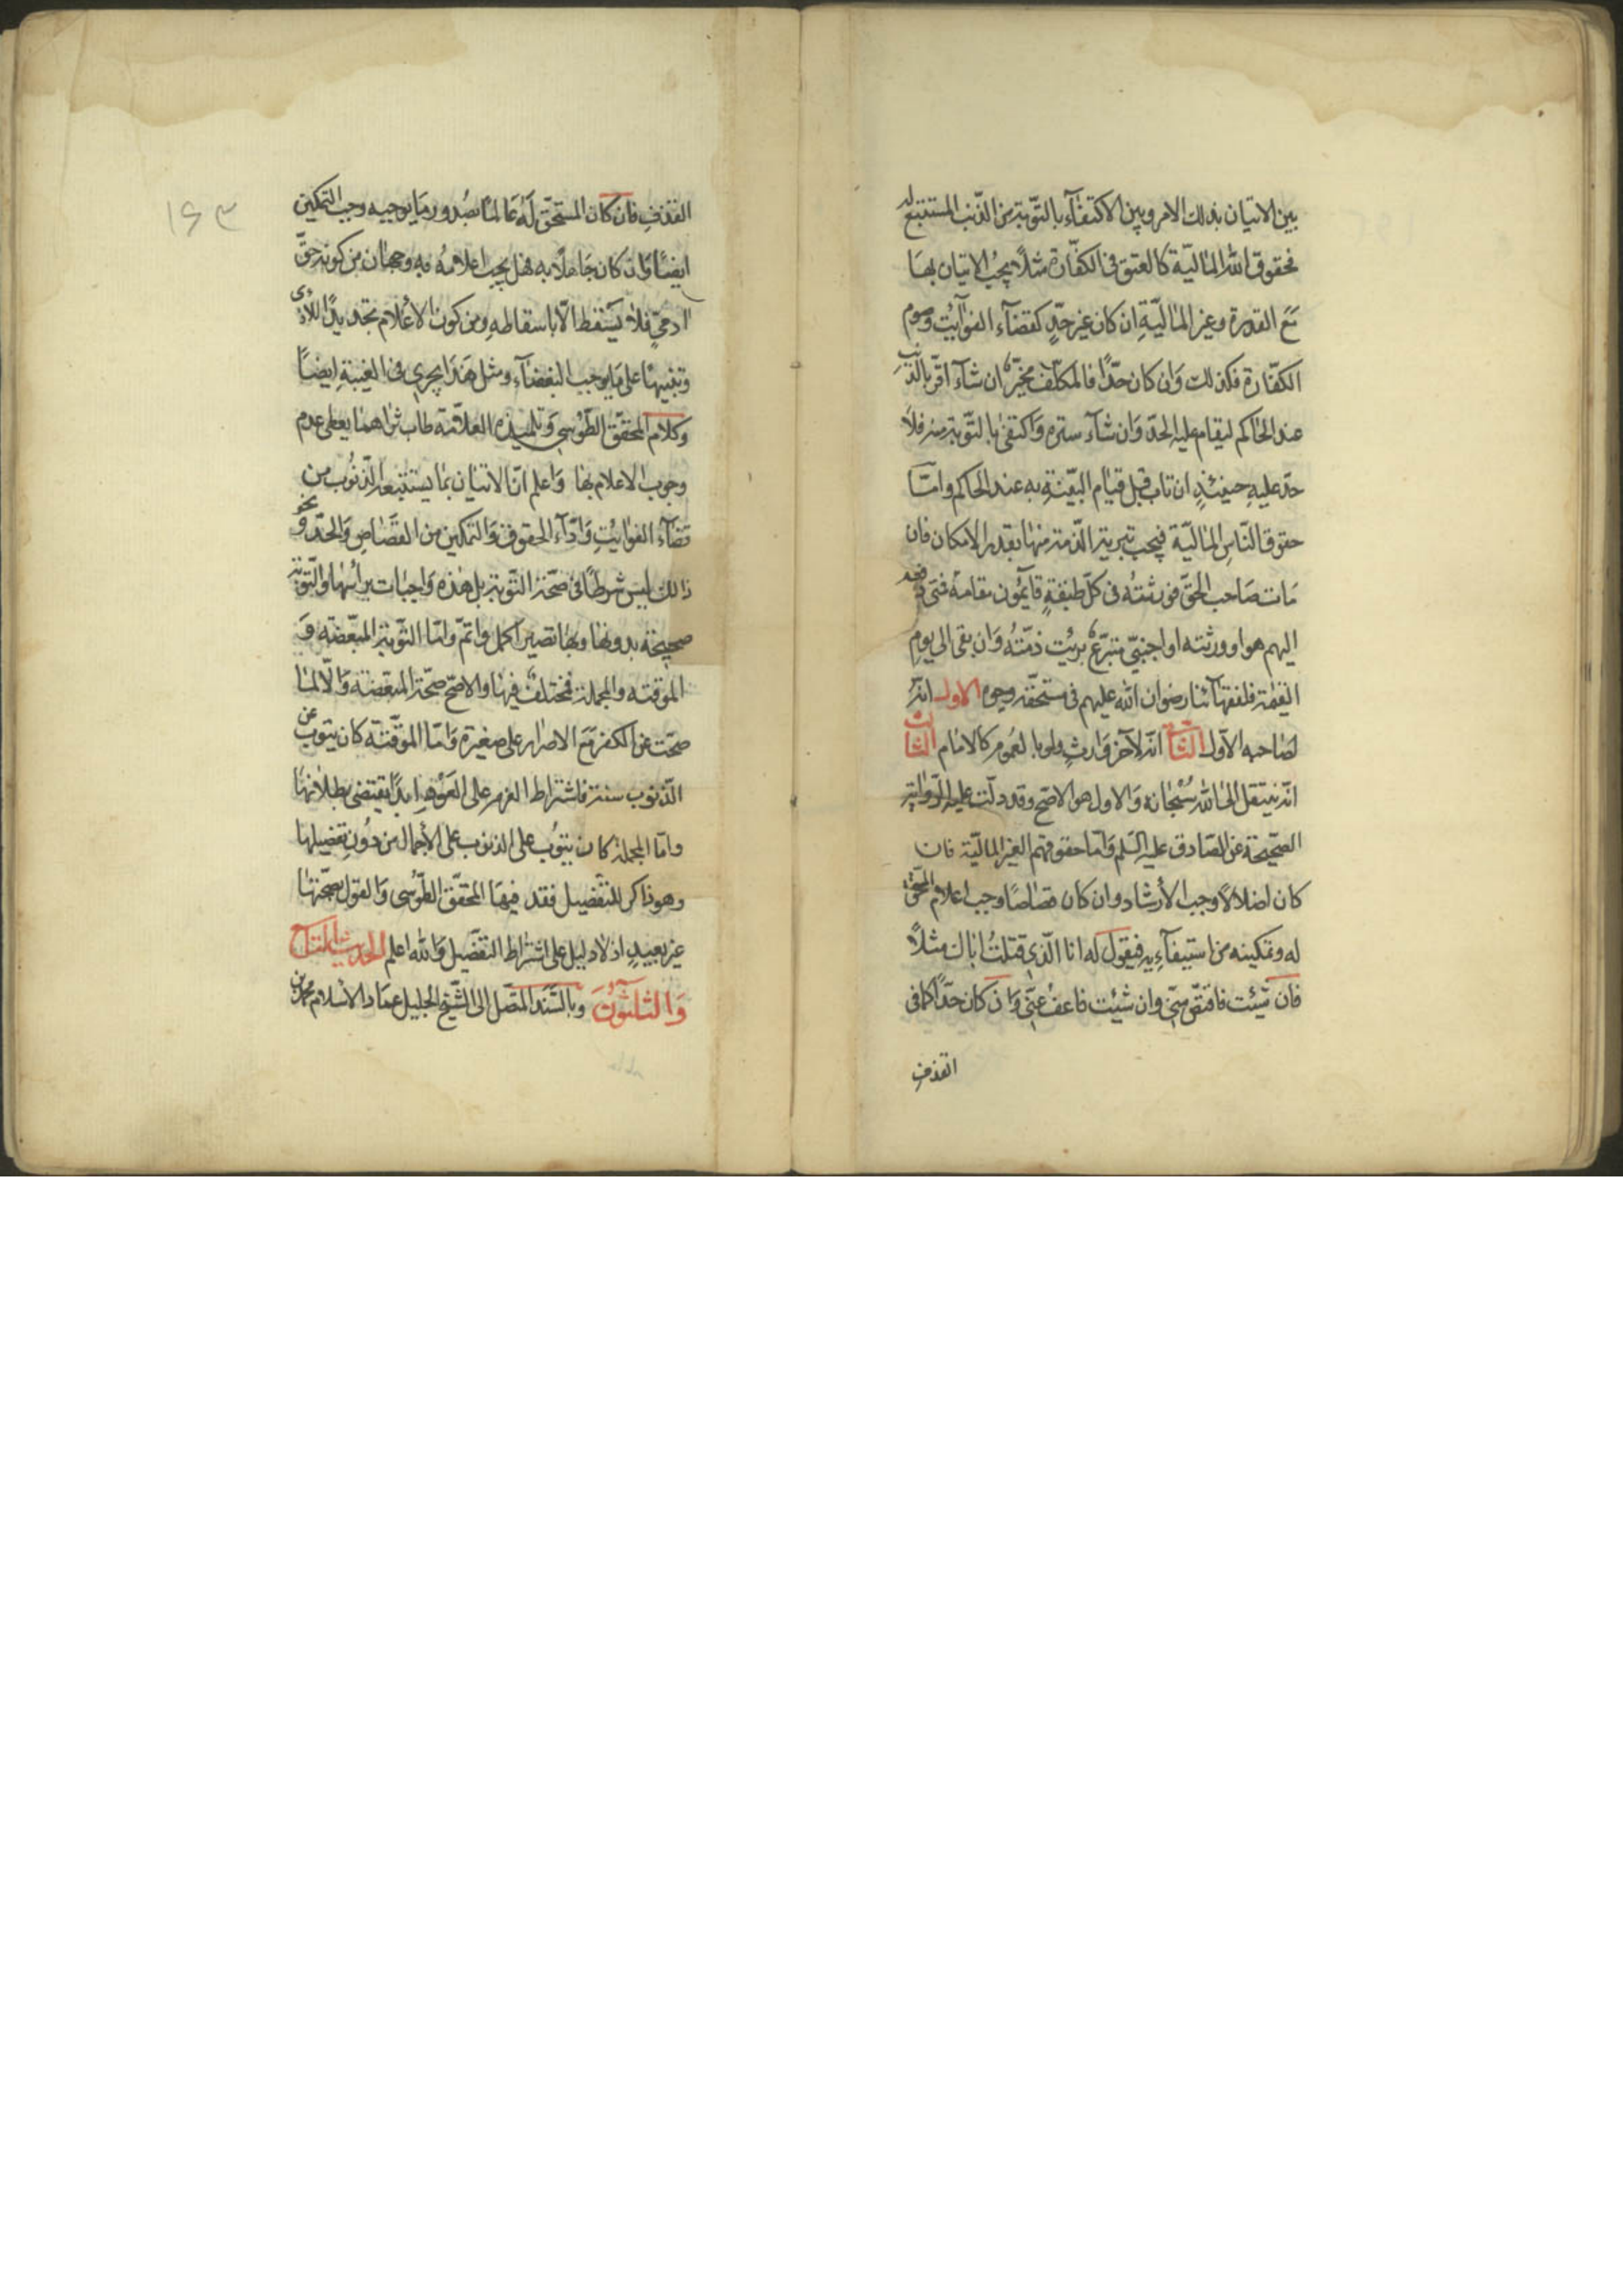 بين الاتيان بذلك الامر وبين الاكتفآء بالتّوبة من الذّنب المستتبع له
فحقوق الله الماليّة كالعتق في الكفّارة مثلًا يجبُ الاتيان بها
مَعَ القدرة وغير الماليّةِ ان كان غير حدٍّ كقضآء الفوآيت وصوم
الكفّارة فكذلك وَان كان حدًّا فالمكلّف مخيّرٌ ان شآء اقرّ بالذّنبِ
عند الحاكم ليقام عليه الحدّ وَان شآء ستره وَاكتفى بالتّوبة منه فلا
حدّ عليهِ حينئذٍ ان تاب قبل قيام البيّنةِ به عند الحاكم وامّا
حقوق النّاسِ الماليّة فيجب تبرية الذّمة منها بقدر الامكان فان
مَات صَاحب الحقّ فورثتُه في كلّ طبقةٍ قايمُون مقامهُ فمتى دفعه
اليهم هو او ورثته او اجنبيّ متبرّعٌ برئت ذمّتُه وَان بقى الى يوم
القيمة فلفقهآئنا رضوان الله عليهم في مستحقّه وجوه الاول انّه
لصَاحبه الاوّل الثانى انّه لآخر وَارثٍ ولو بالعمُوم كالامام الثالث
انّه ينتقل الى الله سُبْحَانه وَالاول هو الاصّح وقد دلّت عليه الرّواية
الصّحيحة عن الصّادق عليه السّلم وَامّا حقوقهم الغير الماليّة فان
كان اضلالًا وجب الأرشاد وان كان قصاصًا وجب اعلام المستحقّ
له وتمكينه من استيفآءِيه فيقول له انا الّذي قتلتُ اباك مثلًا
فان شئت فاقتصّ منّى وان شئت فاعفُ عنّى وَان كان حدًّا كما في
القذفِ
۱۶۳
القذفِ فان كان المستحقّ لَهُ عَالمًا بصُدور مَا يوجبه وجب التّمكين
ايضًا وَان كان جَاهلًا به فهل يجب اعلامُه به وجهان من كونه حقّ
آدميّ فلا يَسْقط الّا باسقاطهِ ومن كون الأعلام تجديدًا للاذى
وتنبيهًا على مَا يوجب البغضآء ومثل هَذَا يجري في الغيبةِ ايضًا
وكلام المحقّق الطّوسي وَتلميذه العلاّمة طاب ثراهما يعطى عدم
وجوب الاعلام بها وَاعلم انّ الاتيان بما يستتبعه الذّنُوب من
قضآء الفوايتِ وَادّآء الحقوق وَالتمكين من القصَاصِ وَالحدّ ونحو
ذالك ليس شرطًا في صحّة التّوبة بل هَذه وَاجبات برأسها والتّوبة
صحيحَة بدونها وبها تصير اكمل واتمّ وامّا التّوبة المبعّضة وَ
الموقّتة والمجملة فمختلفٌ فيها والاصّح صحّة المبعّضة وَالّا لمَا
صحّت عن الكفر مَعَ الاصرار على صغيرة وَامّا الموقّتة كان يتوب عن
الذّنوب سنة فاشتراط العزم على العَوْدِ ابدًا يقتضى بطلانها
وامّا المجملة كان يتوُب على الذنوب على الأجمال من دُون تفصيلها
وهو ذاكر للتفصيل فقد فيها المحقّق الطّوسى وَالقول بصحّتها
غير بعيدٍ اذ لا دليل على اشتراط التفصيل وَالله اعلم الحديث التاسع
وَالثلثوُنَ وبالسَّند المتصّل الى الشّيخ الجليل عمَاد الاسلام محمّد بن